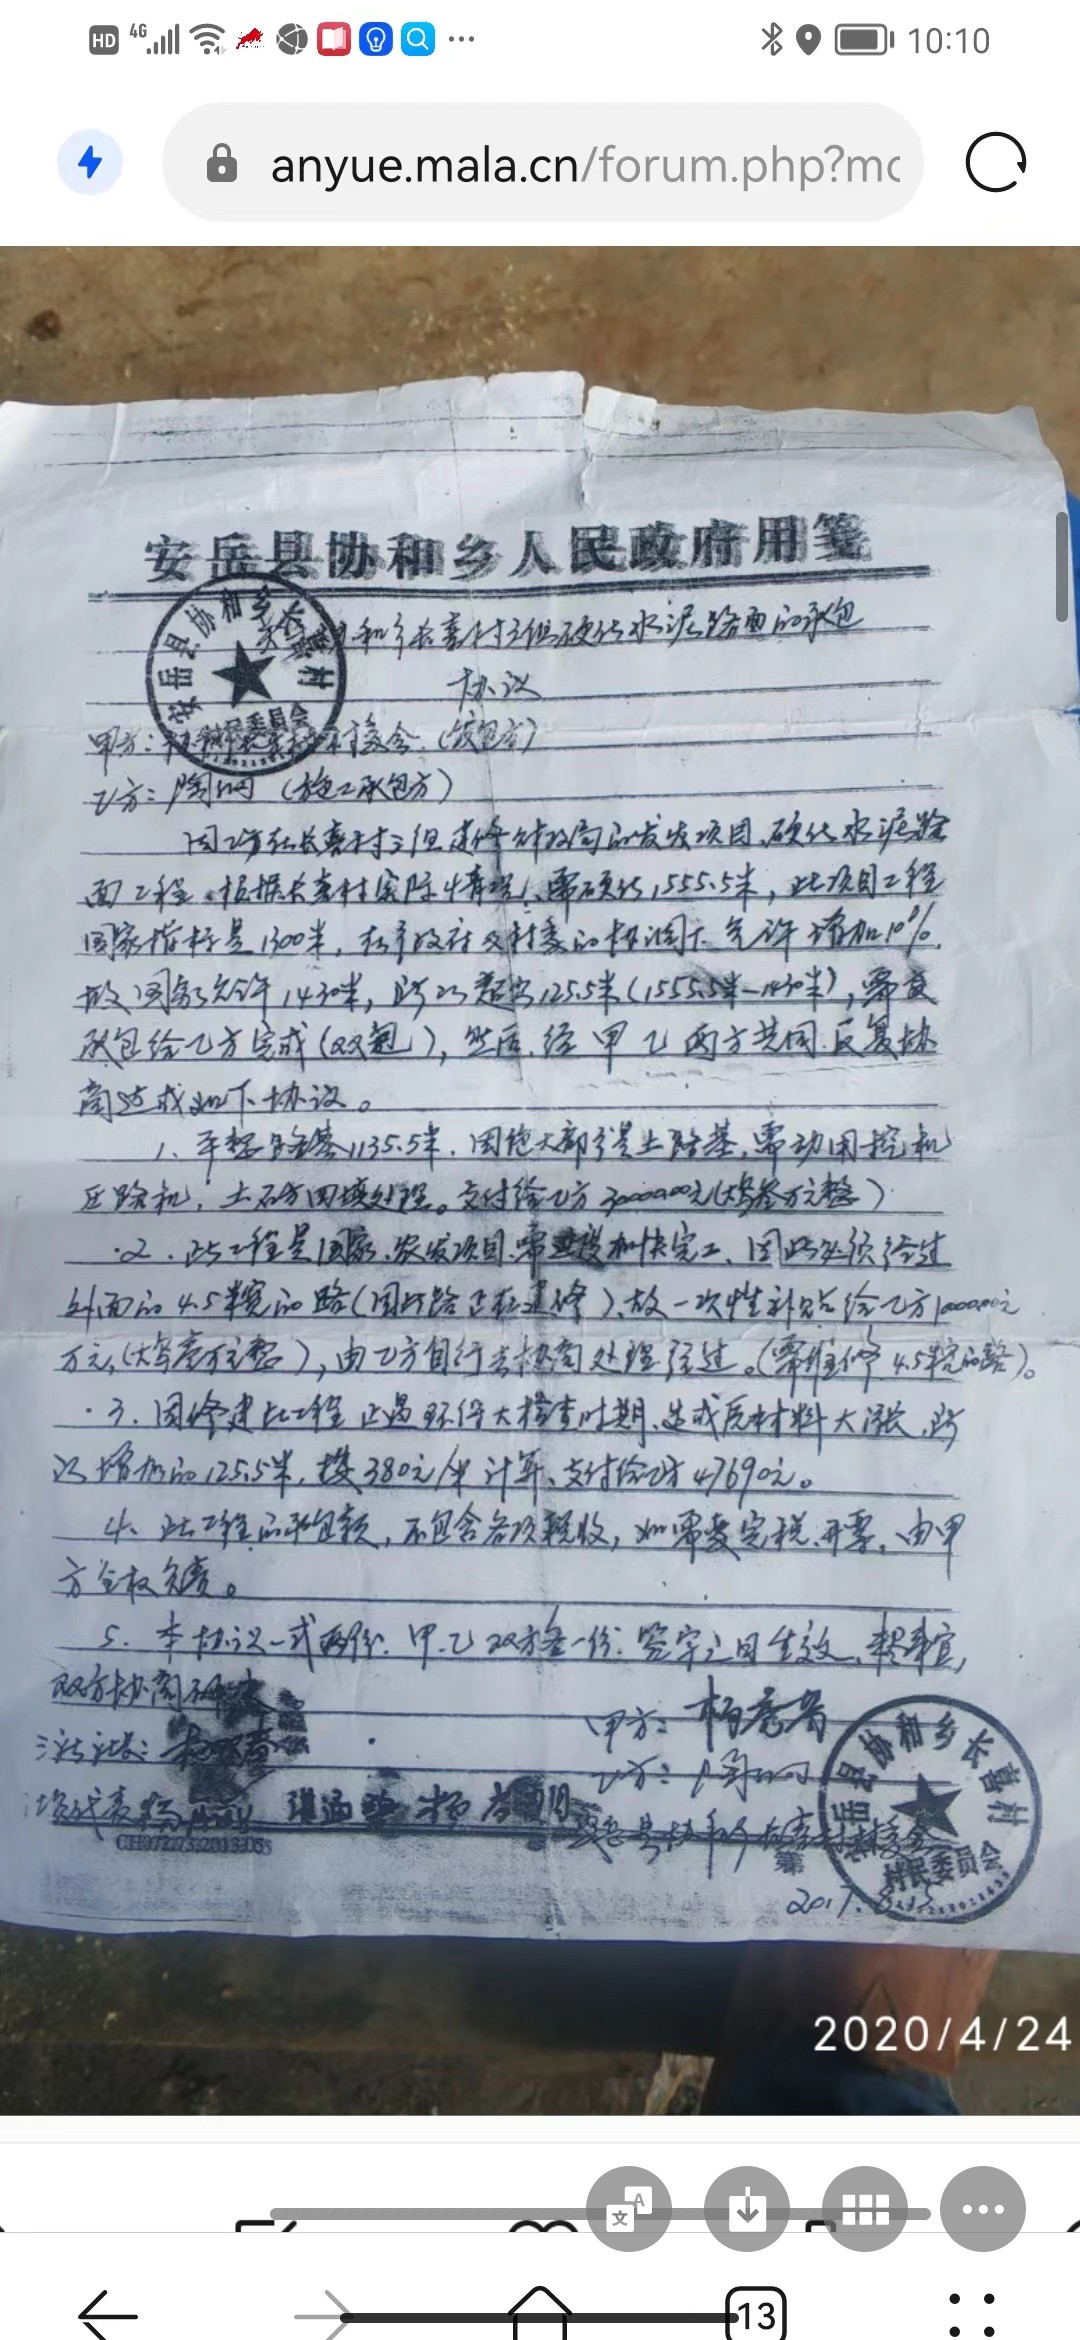 HD 4G 10:10
anyue.mala.cn/forum.php?mo
安岳县协和乡人民政府用笺
安岳县协和乡长喜村
村民委员会
协和乡长喜村三组硬化水泥路面的承包
协议
甲方：村委会（发包方）
乙方：陶（施工承包方）
因乙方在长喜村三组建修财政局的农发项目、硬化水泥路
面工程。根据长喜村实际情况、需硬化1555.5米，此项目工程
国家指标是1300米，在乡政府及村委的协调下允许增加10%，
故国家允许1430米，所以超出125.5米（1555.5米-1430米），需要
承包给乙方完成（双翘），然后、经甲乙两方共同反复协
商达成如下协议。
1、平整路基1135.5米，因施大部分是土路基，需动用挖机
压路机，土石方回填处理。支付给乙方30000.00元（大写叁万元整）
2、此工程是国家农发项目、需进度加快完工、因此必须经过
外面的4.5米宽的路（因此路正在建修）、故一次性补贴给乙方10000.00元
万元，（大写壹万元整），由乙方自行去协商处理经过。（需维修4.5米宽的路）。
3、因修建此工程正遇环保大检查时期、造成原材料大涨，所
以增加的125.5米，按380元/米计算、支付给乙方47690元。
4、此工程的承包额，不包含各项税收，如需要完税、开票，由甲
方全权负责。
5、本协议一式两份、甲、乙双方各一份、签字之日生效、未尽事宜，
双方协商解决
甲方：
三社社长：
乙方：陶
代表：
安岳县协和乡长喜村村委会
第
安岳县协和乡长喜村
村民委员会
2017.8
2020/4/24
文 A
13